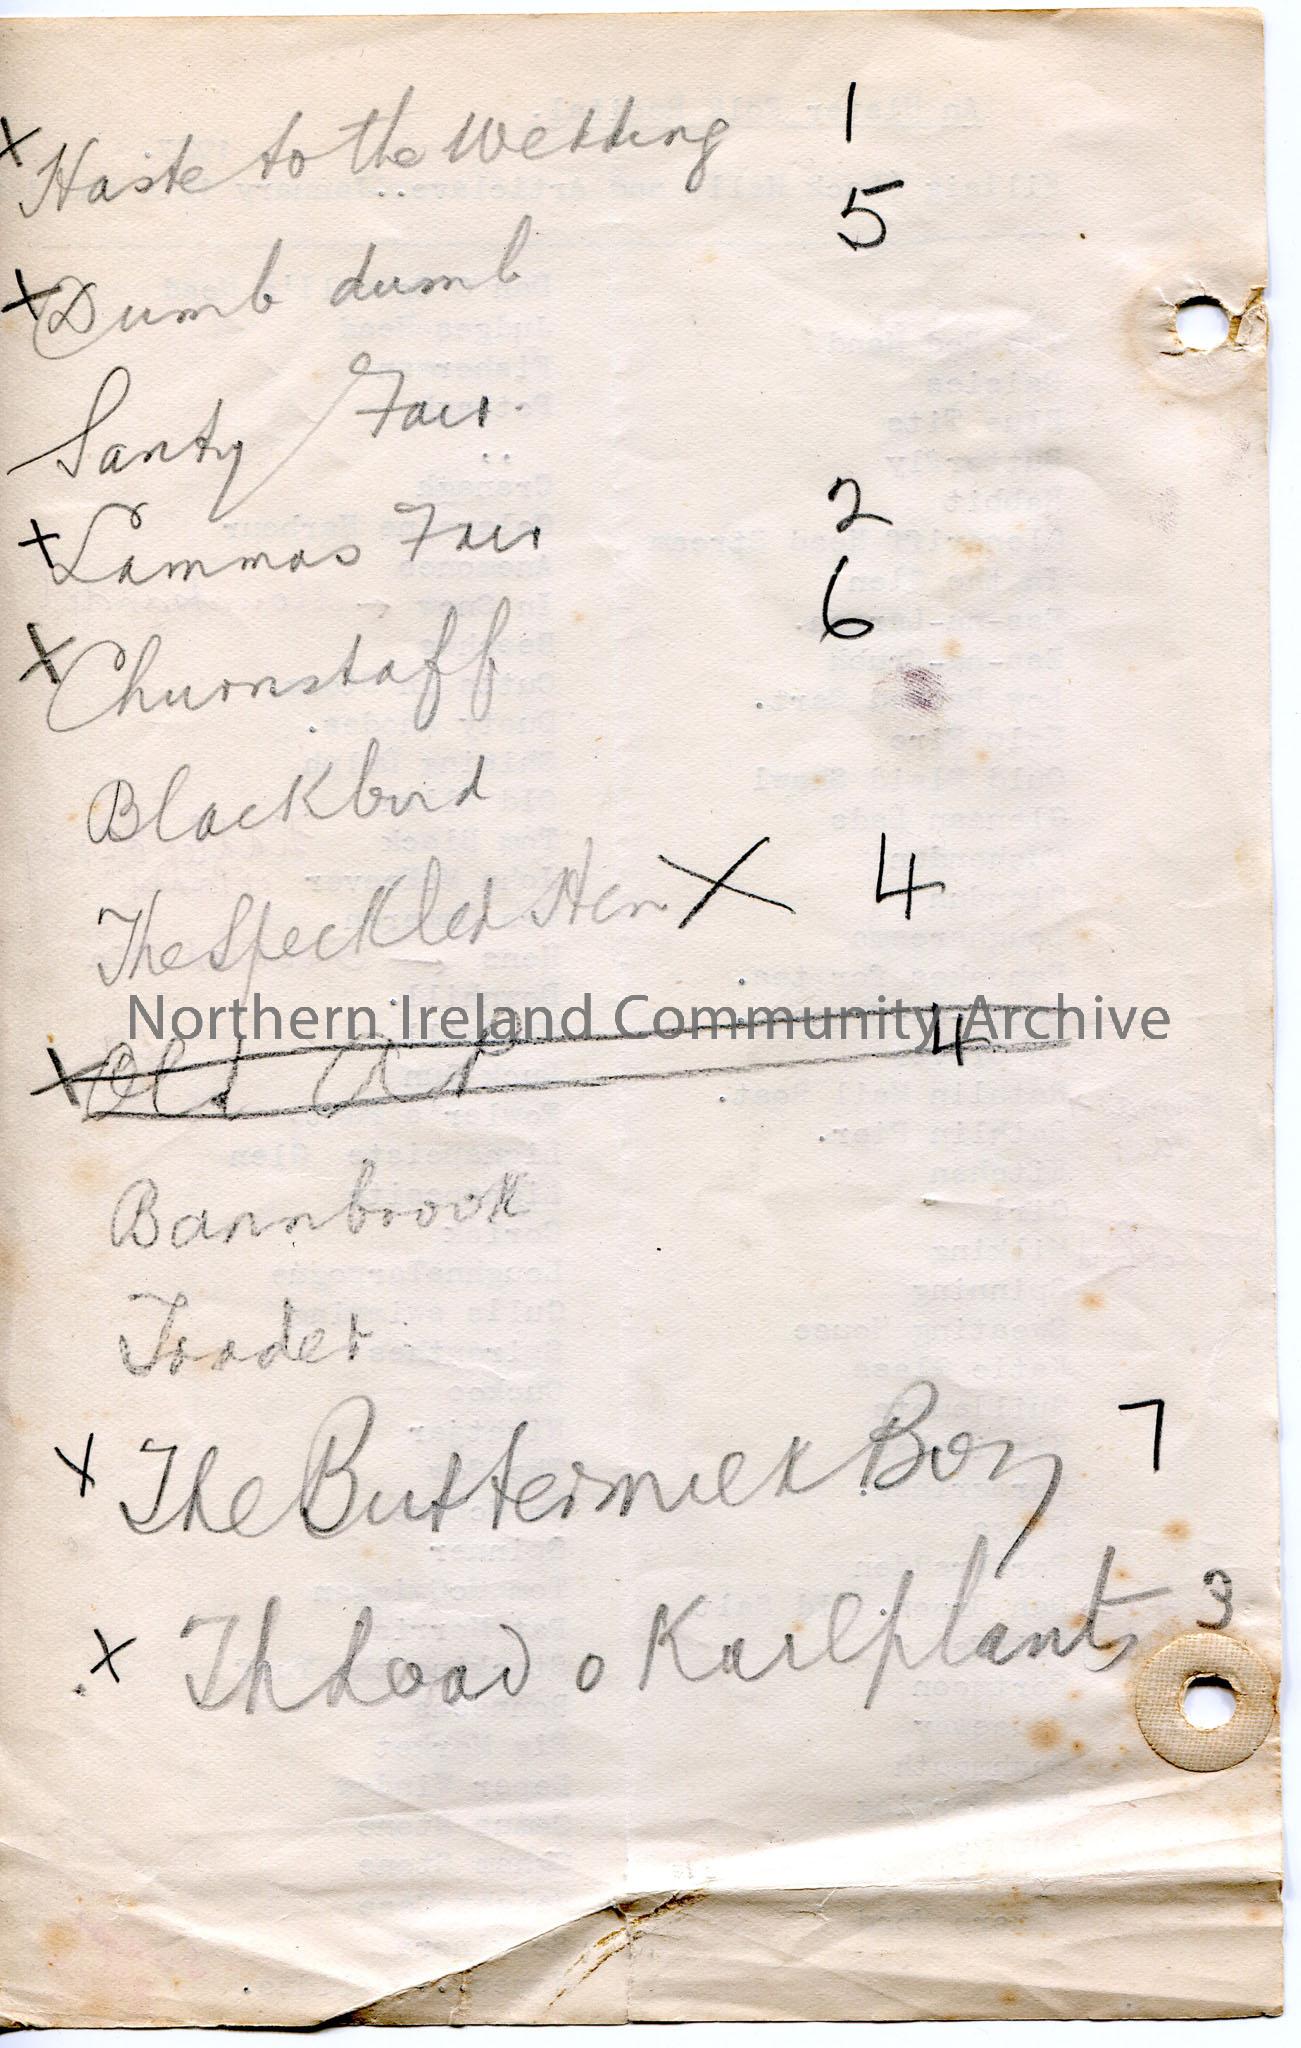 x Haste to the Wedding 1
x Dumb dumb 5
Santy Fair.
x Lammas Fair 2
x Churnstaff 6
Blackbird
The Speckled Hen X 4
Northern Ireland Community Archive
x Old 4
Bannbrook
Trader
x The Buttermilk Boy 7
x Th Load o Kailplants 3